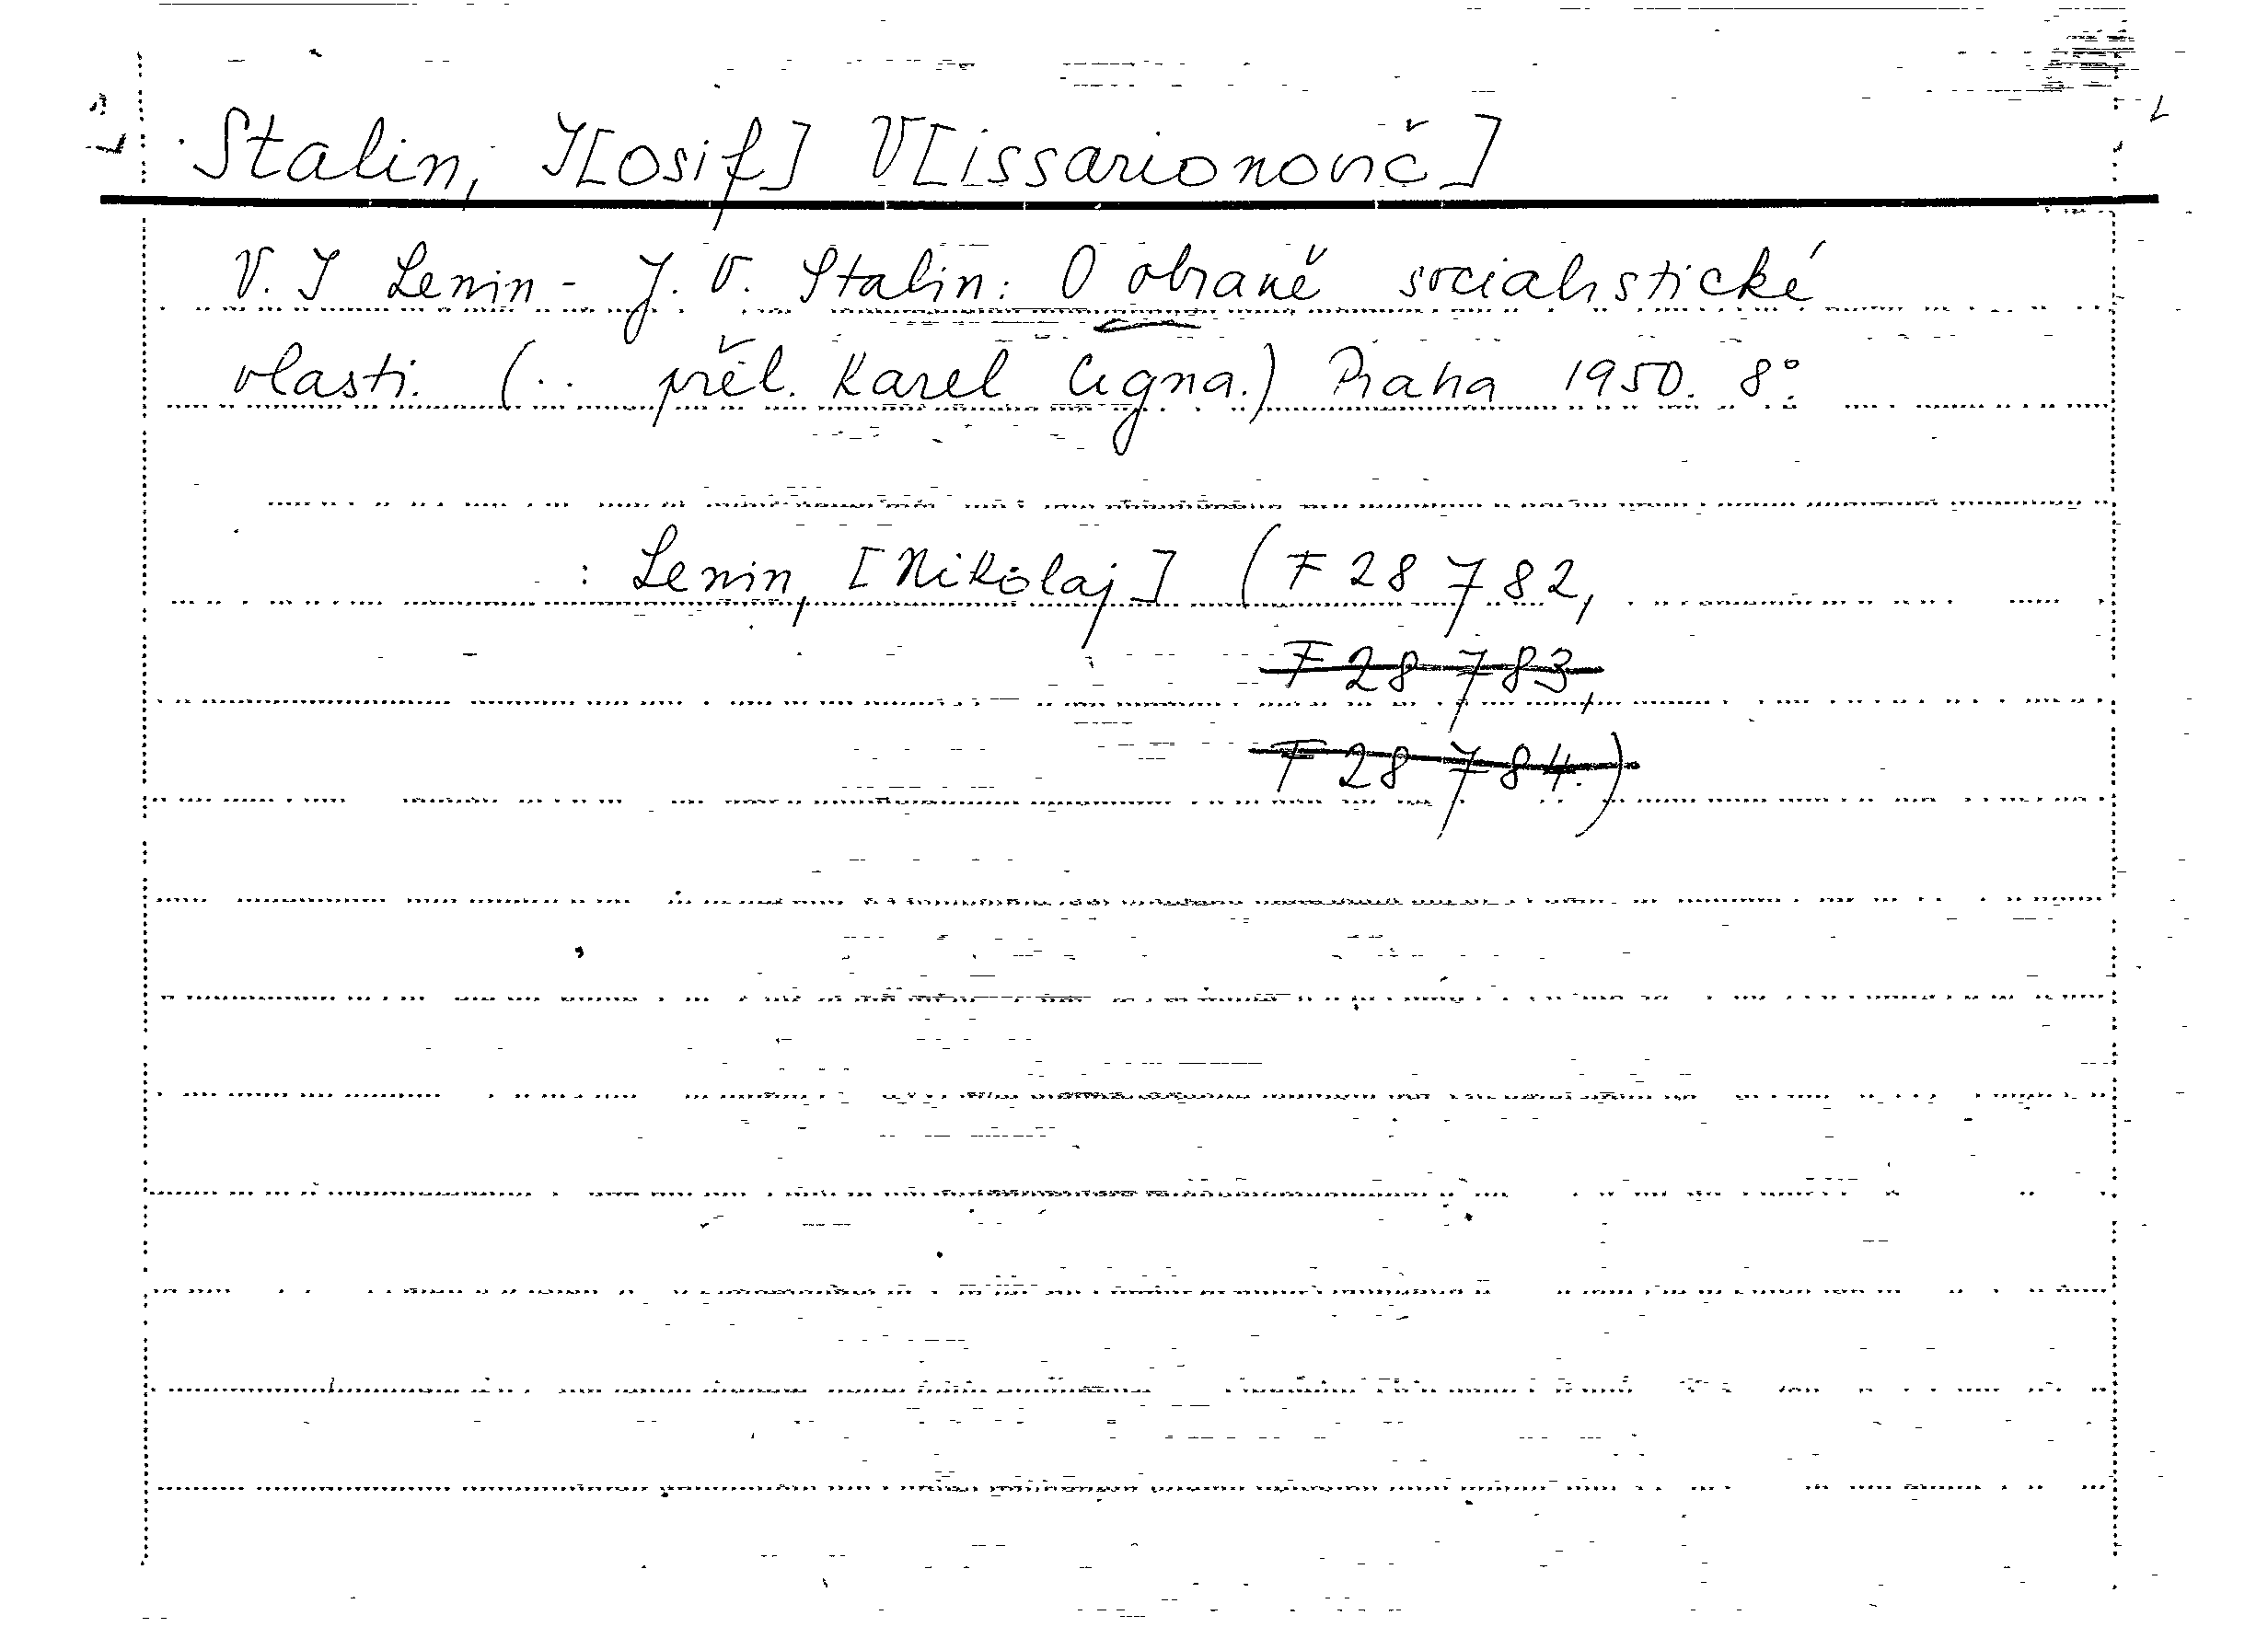 Stalin, J[osif] V[issarionovič]
V. J Lenin - J. V. Stalin: O obraně socialistické
vlasti. (.. přel. Karel Cigna.) Praha 1950. 8°.
: Lenin, [Nikolaj] (F 28 782,
F 28 783,
F 28 784.)